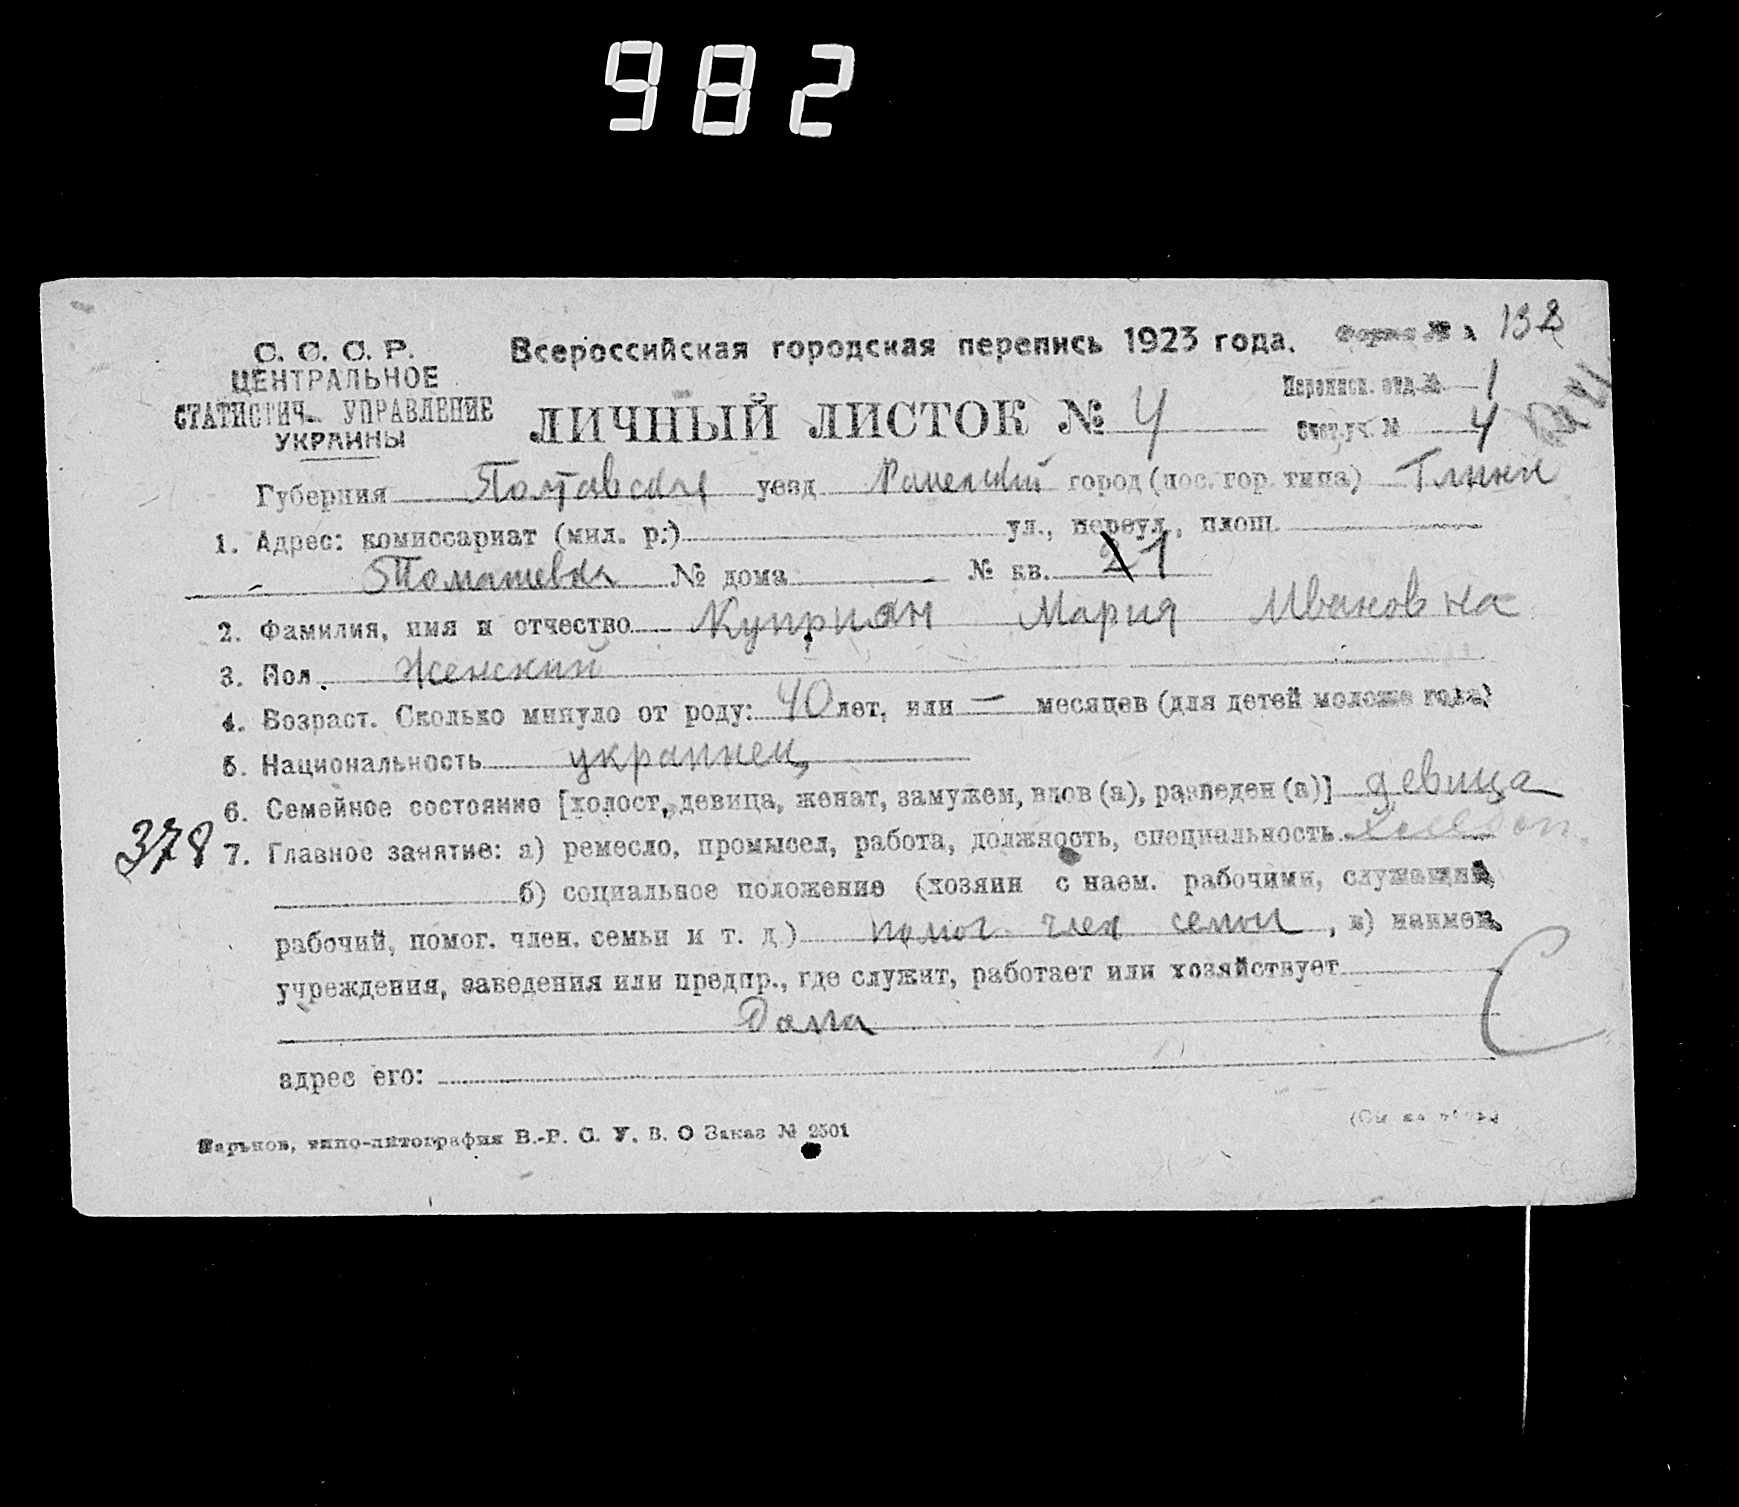 982
132
С. С. С. Р.
ЦЕНТРАЛЬНОЕ
СТАТИСТИЧ. УПРАВЛЕНИЕ
УКРАИНЫ
Всероссийская городская перепись 1923 года.
Переписн. отд. № 1
ЛИЧНЫЙ ЛИСТОК № 4
Счет. уч. № 4
Губерния Полтавская уезд Роменский город (пос. гор. типа) Глинск
1. Адрес: комиссариат (мил. р.) ул., переул., площ.
№ дома № кв. 1
2. Фамилия, имя и отчество Куприян Мария Ивановна
3. Пол Женский
4. Возраст. Сколько минуло от роду: 40 лет, или — месяцев (для детей моложе года)
5. Национальность украинец
6. Семейное состояние [холост, девица, женат, замужем, вдов (а), разведен (а)] девица
378
7. Главное занятие: а) ремесло, промысел, работа, должность, специальность
б) социальное положение (хозяин с наем. рабочими, служащий,
рабочий, помог. член. семьи и т. д.) помог. член семьи, в) наимен.
учреждения, заведения или предпр., где служит, работает или хозяйствует
Дома
С
адрес его:
Харьков, типо-литография В.-Р. С. У. В. О Заказ № 2501